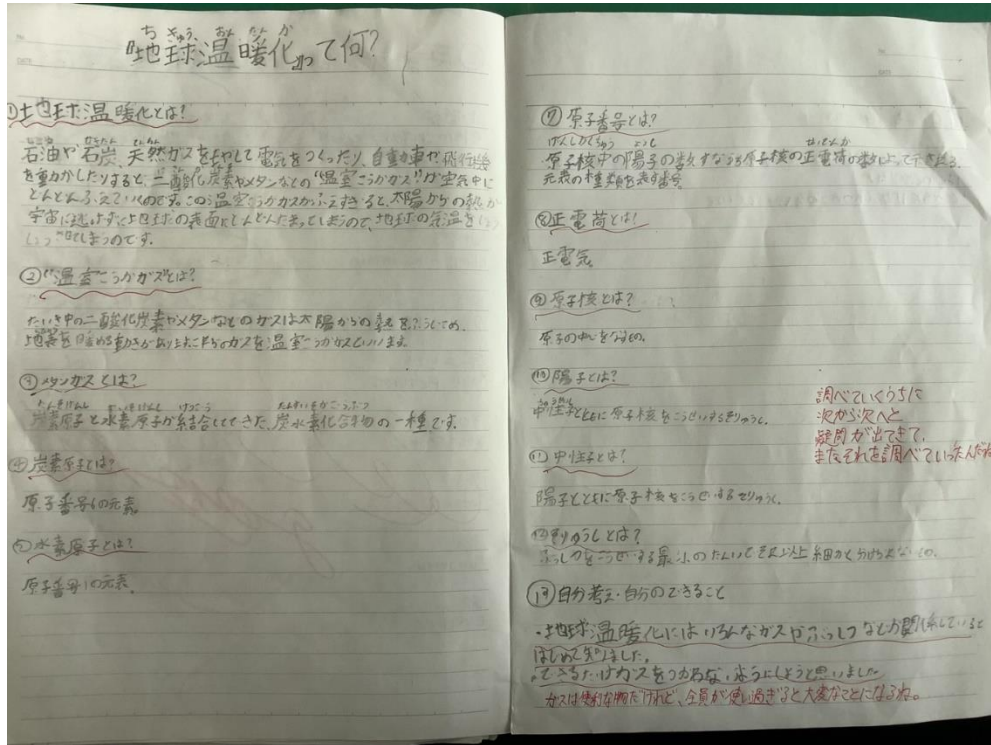 ちきゅう おんだんか
『地球温暖化』って何?
①地球温暖化とは!
石油や石炭、天然ガスをもやして電気をつくったり、自動車や飛行機
を動かしたりすると、二酸化炭素やメタンなどの"温室こうかガス"が空気中に
どんどんふえていくのです。この温室こうかガスがふえすぎると、太陽からの熱が
宇宙に逃げずに地球の表面にどんどんたまってしまうので、地球の気温を
してしまうのです。
②"温室こうかガス"とは?
たいき中の二酸化炭素やメタンなどのガスは太陽からの熱を
地表を暖める働きがあります。これらのガスを温室こうかガスといいます。
③メタンガスとは?
たんそげんし すいそげんし けつごう たんすいそかごうぶつ
炭素原子と水素原子が結合してできた、炭水素化合物の一種です。
④炭素原子とは?
原子番号6の元素。
⑤水素原子とは?
原子番号1の元素。
⑦原子番号とは?
原子核中の陽子の数すなわち原子核の正電荷の数によって
元素の種類を表す番号
⑧正電荷とは?
正電気。
⑨原子核とは?
原子の中心をなすもの。
⑩陽子とは?
中性子とともに原子核をこうせいするりゅうし。
⑪中性子とは?
陽子とともに原子核をこうせいするりゅうし。
⑫りゅうしとは?
ぶっしつをこうせいする最小のたんいでそれ以上細かく分けられないもの。
⑬自分考え・自分のできること
・地球温暖化にはいろんなガスやぶっしつなどが関係していると
はじめて知りました。
・できるだけガスをつかわないようにしようと思いました。
ガスは便利な物だけれど、全員が使い過ぎると大変なことになるね。
調べていくうちに
次から次へと
疑問が出てきて、
またそれを調べていったんだね